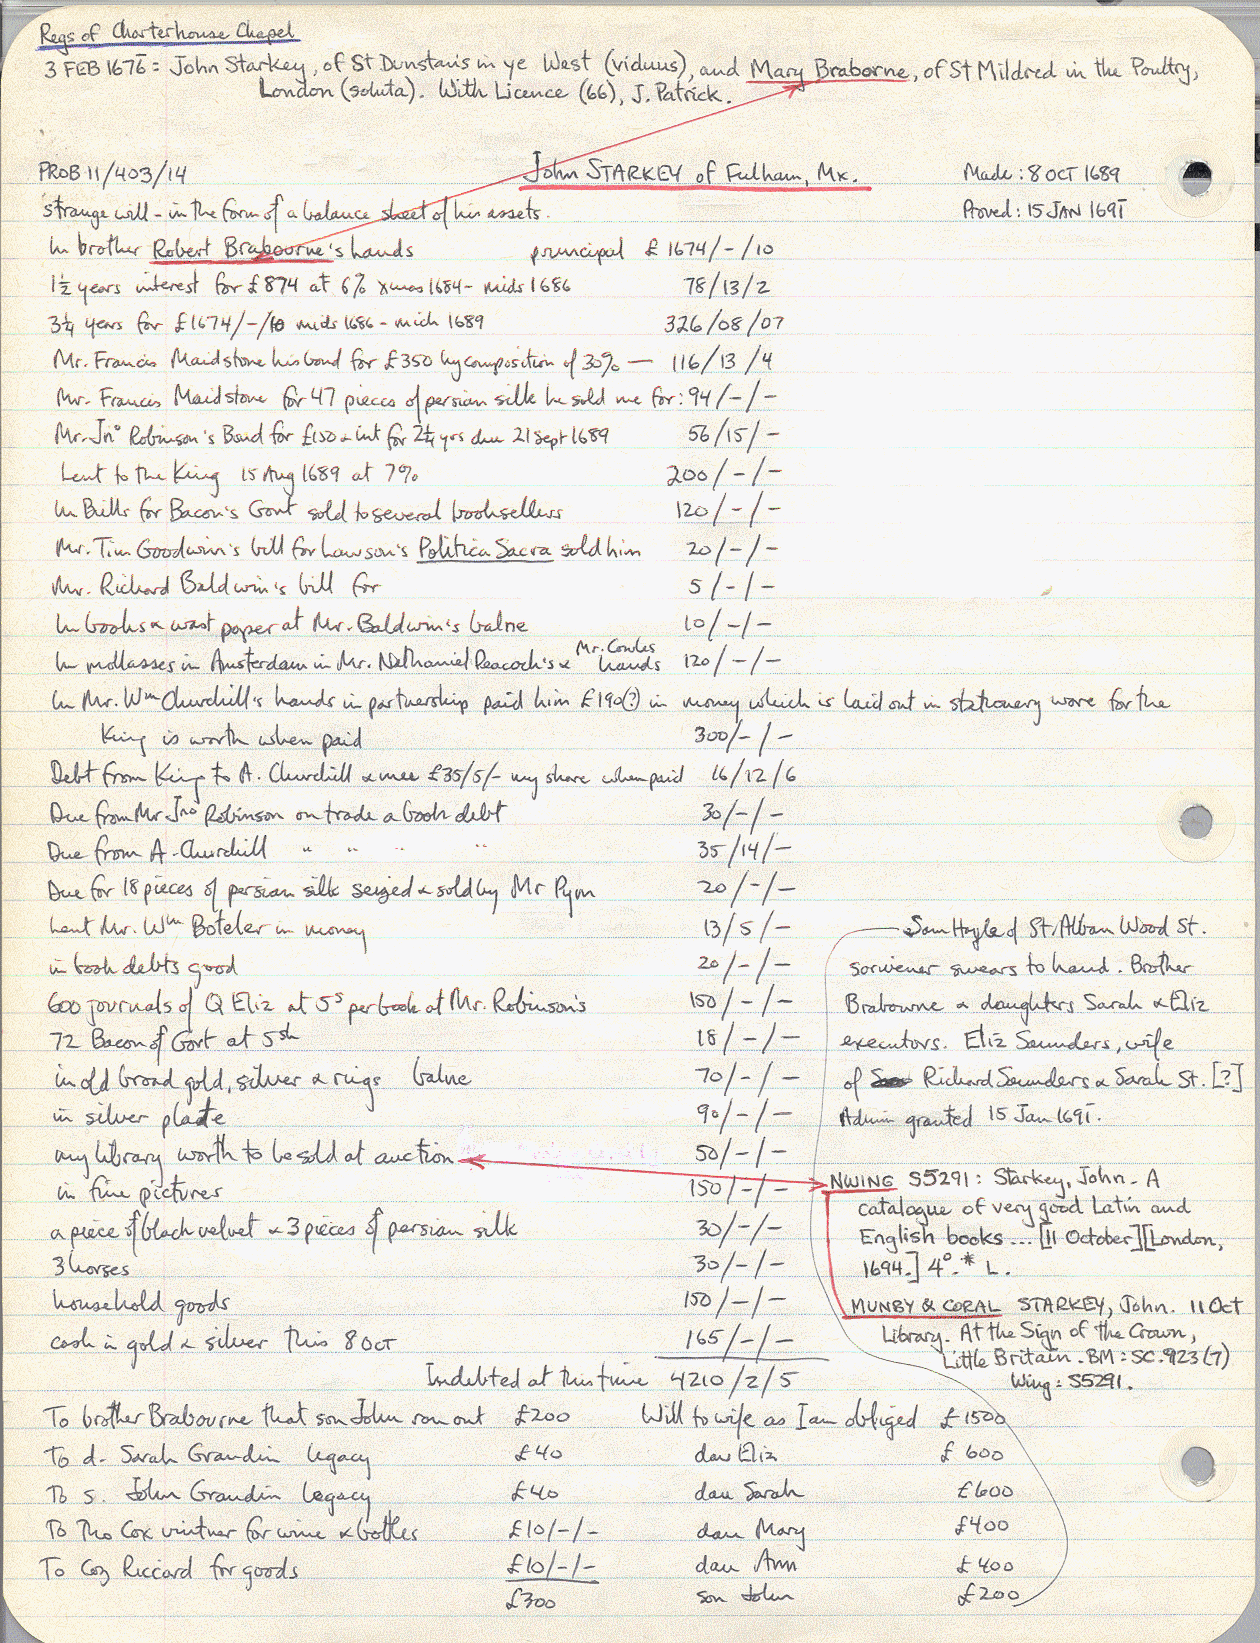 Regs of Charterhouse Chapel
3 FEB 1676: John Starkey, of St Dunstan's in ye West (viduus), and Mary Braborne, of St Mildred in the Poultry,
London (soluta). With Licence (66), J. Patrick.
PROB 11/403/14 John STARKEY of Fulham, Mx. Made: 8 OCT 1689
strange will - in the form of a balance sheet of his assets. Proved: 15 JAN 1691
In brother Robert Brabourne's hands principal £ 1674/-/10
1½ years interest for £874 at 6% xmas 1684 - mids 1686 78/13/2
3¼ years for £1674/-/10 mids 1686 - mich 1689 326/08/07
Mr. Francis Maidstone his bond for £350 by composition of 30% — 116/13/4
Mr. Francis Maidstone for 47 pieces of persian silk he sold me for: 94/-/-
Mr. Jno Robinson's Bond for £150 & int for 2¼ yrs due 21 Sept 1689 56/15/-
Lent to the King 15 Aug 1689 at 7% 200/-/-
In Bills for Bacon's Govt sold to several booksellers 120/-/-
Mr. Tim Goodwin's bill for Lawson's Politica Sacra sold him 20/-/-
Mr. Richard Baldwin's bill for 5/-/-
In books & wast paper at Mr. Baldwin's value 10/-/-
In mollasses in Amsterdam in Mr. Nathaniel Peacock's & Mr. Cowles hands 120/-/-
In Mr. Wm Churchill's hands in partnership paid him £190(?) in money which is laid out in stationery ware for the
King is worth when paid 300/-/-
Debt from King to A. Churchill & mee £35/5/- my share when paid 16/12/6
Due from Mr Jno Robinson on trade a book debt 30/-/-
Due from A. Churchill " " " " 35/14/-
Due for 18 pieces of persian silk seized & sold by Mr Pym 20/-/-
Lent Mr. Wm Boteler in money 13/5/-
in book debts good 20/-/-
600 journals of Q Eliz at 5s per book at Mr. Robinson's 150/-/-
72 Bacon of Govt at 5sh 18/-/-
in old broad gold, silver & rings value 70/-/-
in silver plate 90/-/-
my library worth to be sold at auction 50/-/-
in fine pictures 150/-/-
a piece of black velvet & 3 pieces of persian silk 30/-/-
3 horses 30/-/-
household goods 150/-/-
cash in gold & silver this 8 OCT 165/-/-
Sam Hoyle of St. Alban Wood St.
scrivener swears to hand. Brother
Brabourne & daughters Sarah & Eliz
executors. Eliz Saunders, wife
of Richard Saunders & Sarah St. [?]
Admin granted 15 Jan 1691.
NWING S5291: Starkey, John - A
catalogue of very good Latin and
English books ... [11 October] [London,
1694.] 4°.* L.
MUNBY & CORAL STARKEY, John. 11 Oct
Library. At the Sign of the Crown,
Little Britain. BM: SC.923(7)
Wing: S5291.
Indebted at this time 4210/2/5
To brother Brabourne that son John ran out £200 Will to wife as I am obliged £1500
To d. Sarah Grandin legacy £40 dau Eliz £600
To s. John Grandin legacy £40 dau Sarah £600
To Tho Cox vintner for wine & bottles £10/-/- dau Mary £400
To Coz Riccard for goods £10/-/- dau Ann £400
£300 son John £200